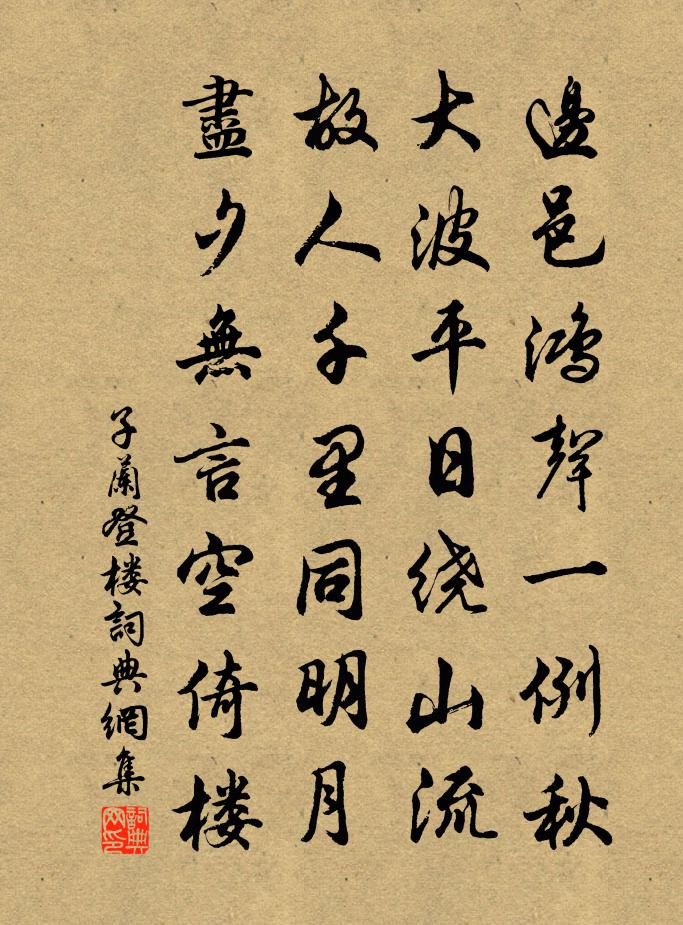 邊邑鴻聲一例秋
大波平日绕山流
故人千里同明月
盡夕無言空倚楼
子蘭登楼詞典網集
詞典网印